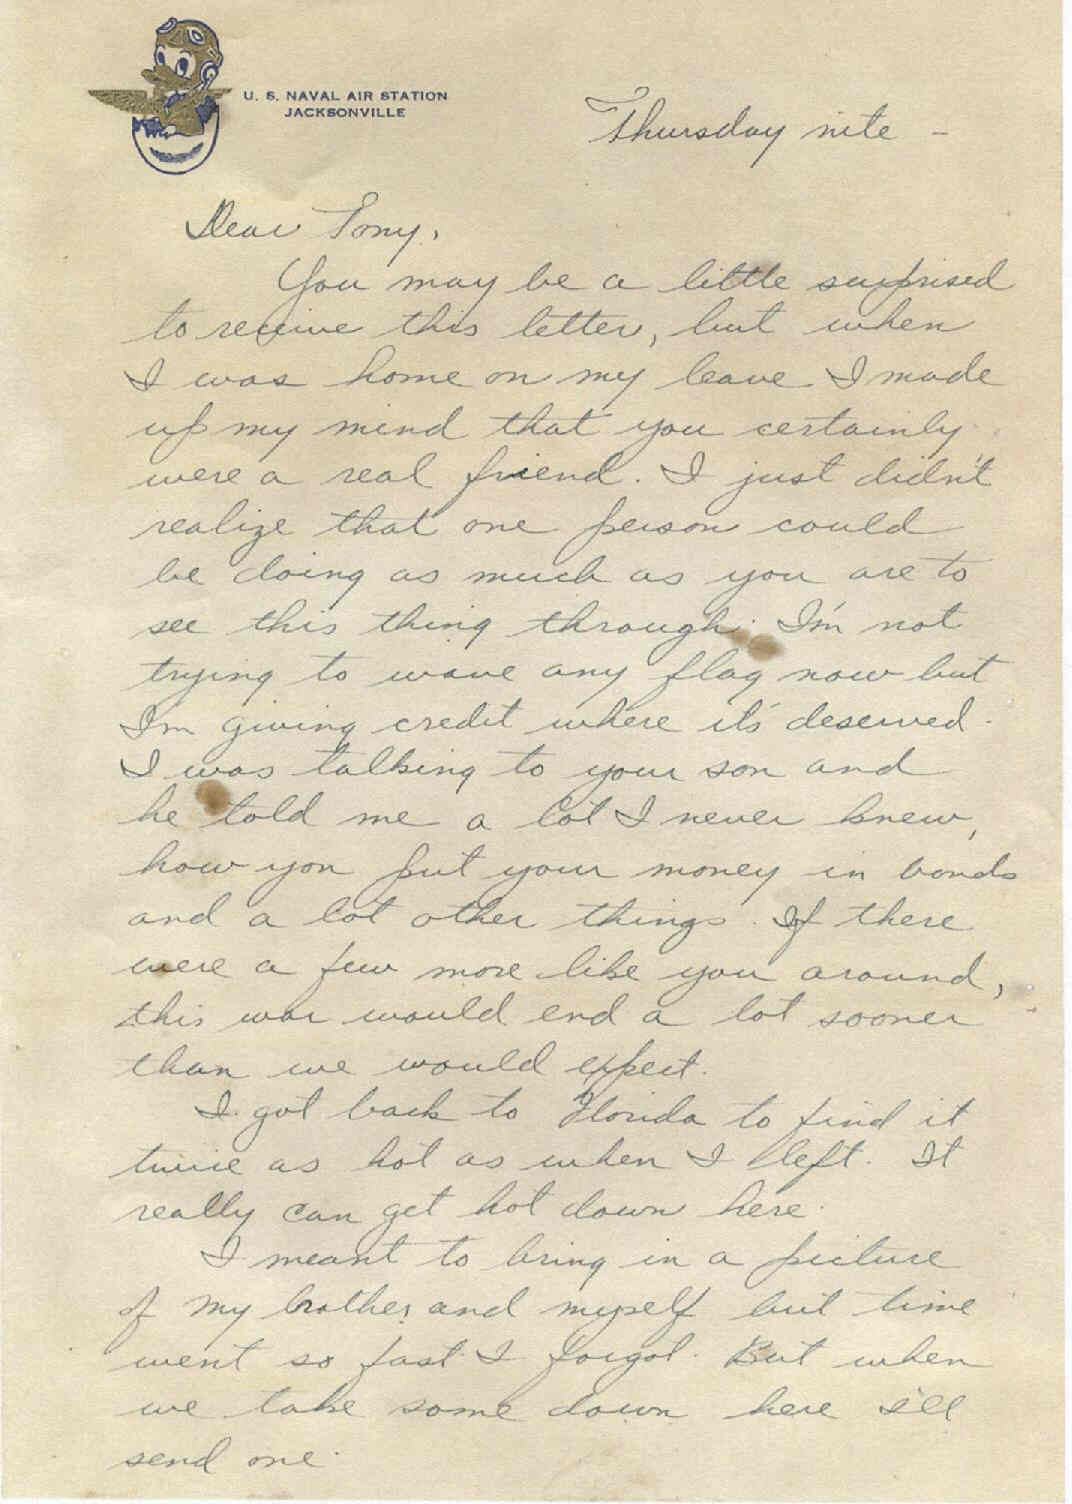 U. S. NAVAL AIR STATION
JACKSONVILLE
Thursday nite -
Dear Tony,
You may be a little surprised
to receive this letter, but when
I was home on my leave I made
up my mind that you certainly
were a real friend. I just didn't
realize that one person could
be doing as much as you are to
see this thing through. I'm not
trying to wave any flag now but
I'm giving credit where it's deserved.
I was talking to your son and
he told me a lot I never knew,
how you put your money in bonds
and a lot other things. If there
were a few more like you around,
this war would end a lot sooner
than we would expect.
I got back to Florida to find it
twice as hot as when I left. It
really can get hot down here.
I meant to bring in a picture
of my brother and myself but time
went so fast I forgot. But when
we take some down here I'll
send one.